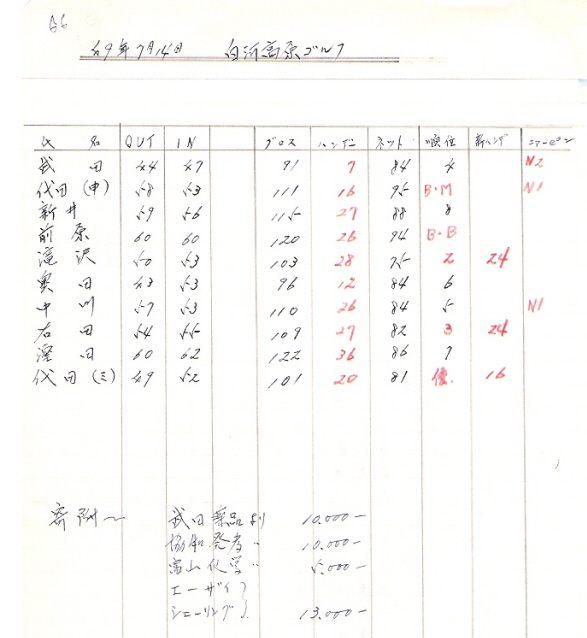 49年7月14日 白河高原ゴルフ
氏名 OUT IN グロス ハンデー ネット 順位 新ハンデ ニアーピン
武田 44 47 91 7 84 4 N2
代田(申) 58 53 111 16 95 B・M N1
新井 59 56 115 27 88 8
前原 60 60 120 26 94 B・B
滝沢 50 53 103 28 75 2 24
奥田 43 53 96 12 84 6
中川 57 53 110 26 84 5 N1
右田 54 55 109 27 82 3 24
田 60 62 122 36 86 7
代田(三) 49 52 101 20 81 優. 16
寄附〜 武田薬品より 10.000-
協和発酵 〃 10.000-
富山化学 〃 5.000-
エーザイ
シェーリング 13.000-